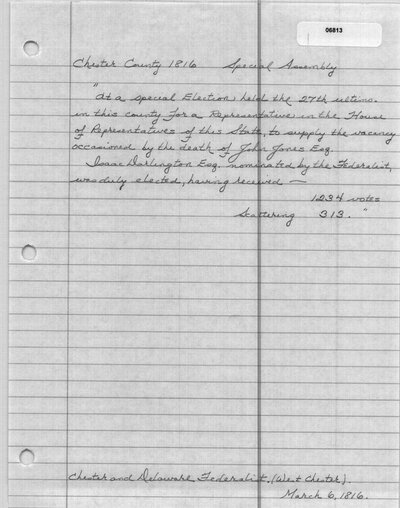 06813
Chester County 1816 Special Assembly
"At a special Election held the 27th ultimo.
in this county for a Representative in the House
of Representatives of this State, to supply the vacancy
occasioned by the death of John Jones Esq.
Isaac Darlington Esq. nominated by the Federalist,
was duly elected, having received —
1234 votes
Scattering 313. "
Chester and Delaware Federalist. (West Chester).
March 6, 1816.